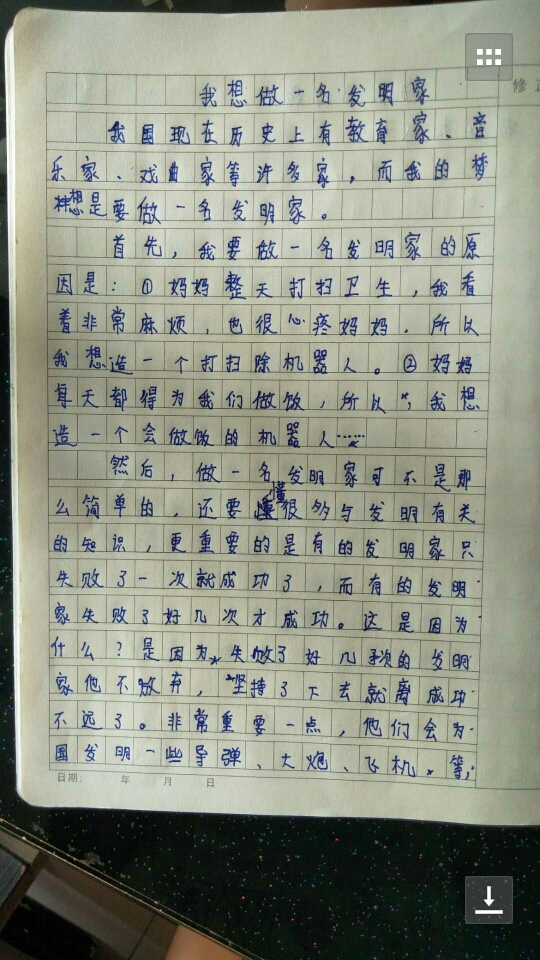 修正
我想做一名发明家
我国现在历史上有教育家、音
乐家、戏曲家等许多家，而我的梦
想是要做一名发明家。
首先，我要做一名发明家的原
因是：①妈妈整天打扫卫生，我看
着非常麻烦，也很心疼妈妈．所以
我想造一个打扫除机器人。②妈妈
每天都得为我们做饭，所以，我想
造一个会做饭的机器人……
然后，做一名发明家可不是那
么简单的，还要懂很多与发明有关
的知识，更重要的是有的发明家只
失败了一次就成功了，而有的发明
家失败了好几次才成功。这是因为
什么？是因为失败了好几次的发明
家他不放弃，坚持了下去就离成功
不远了。非常重要一点，他们会为
国发明一些导弹、大炮、飞机．等，
日期： 年 月 日